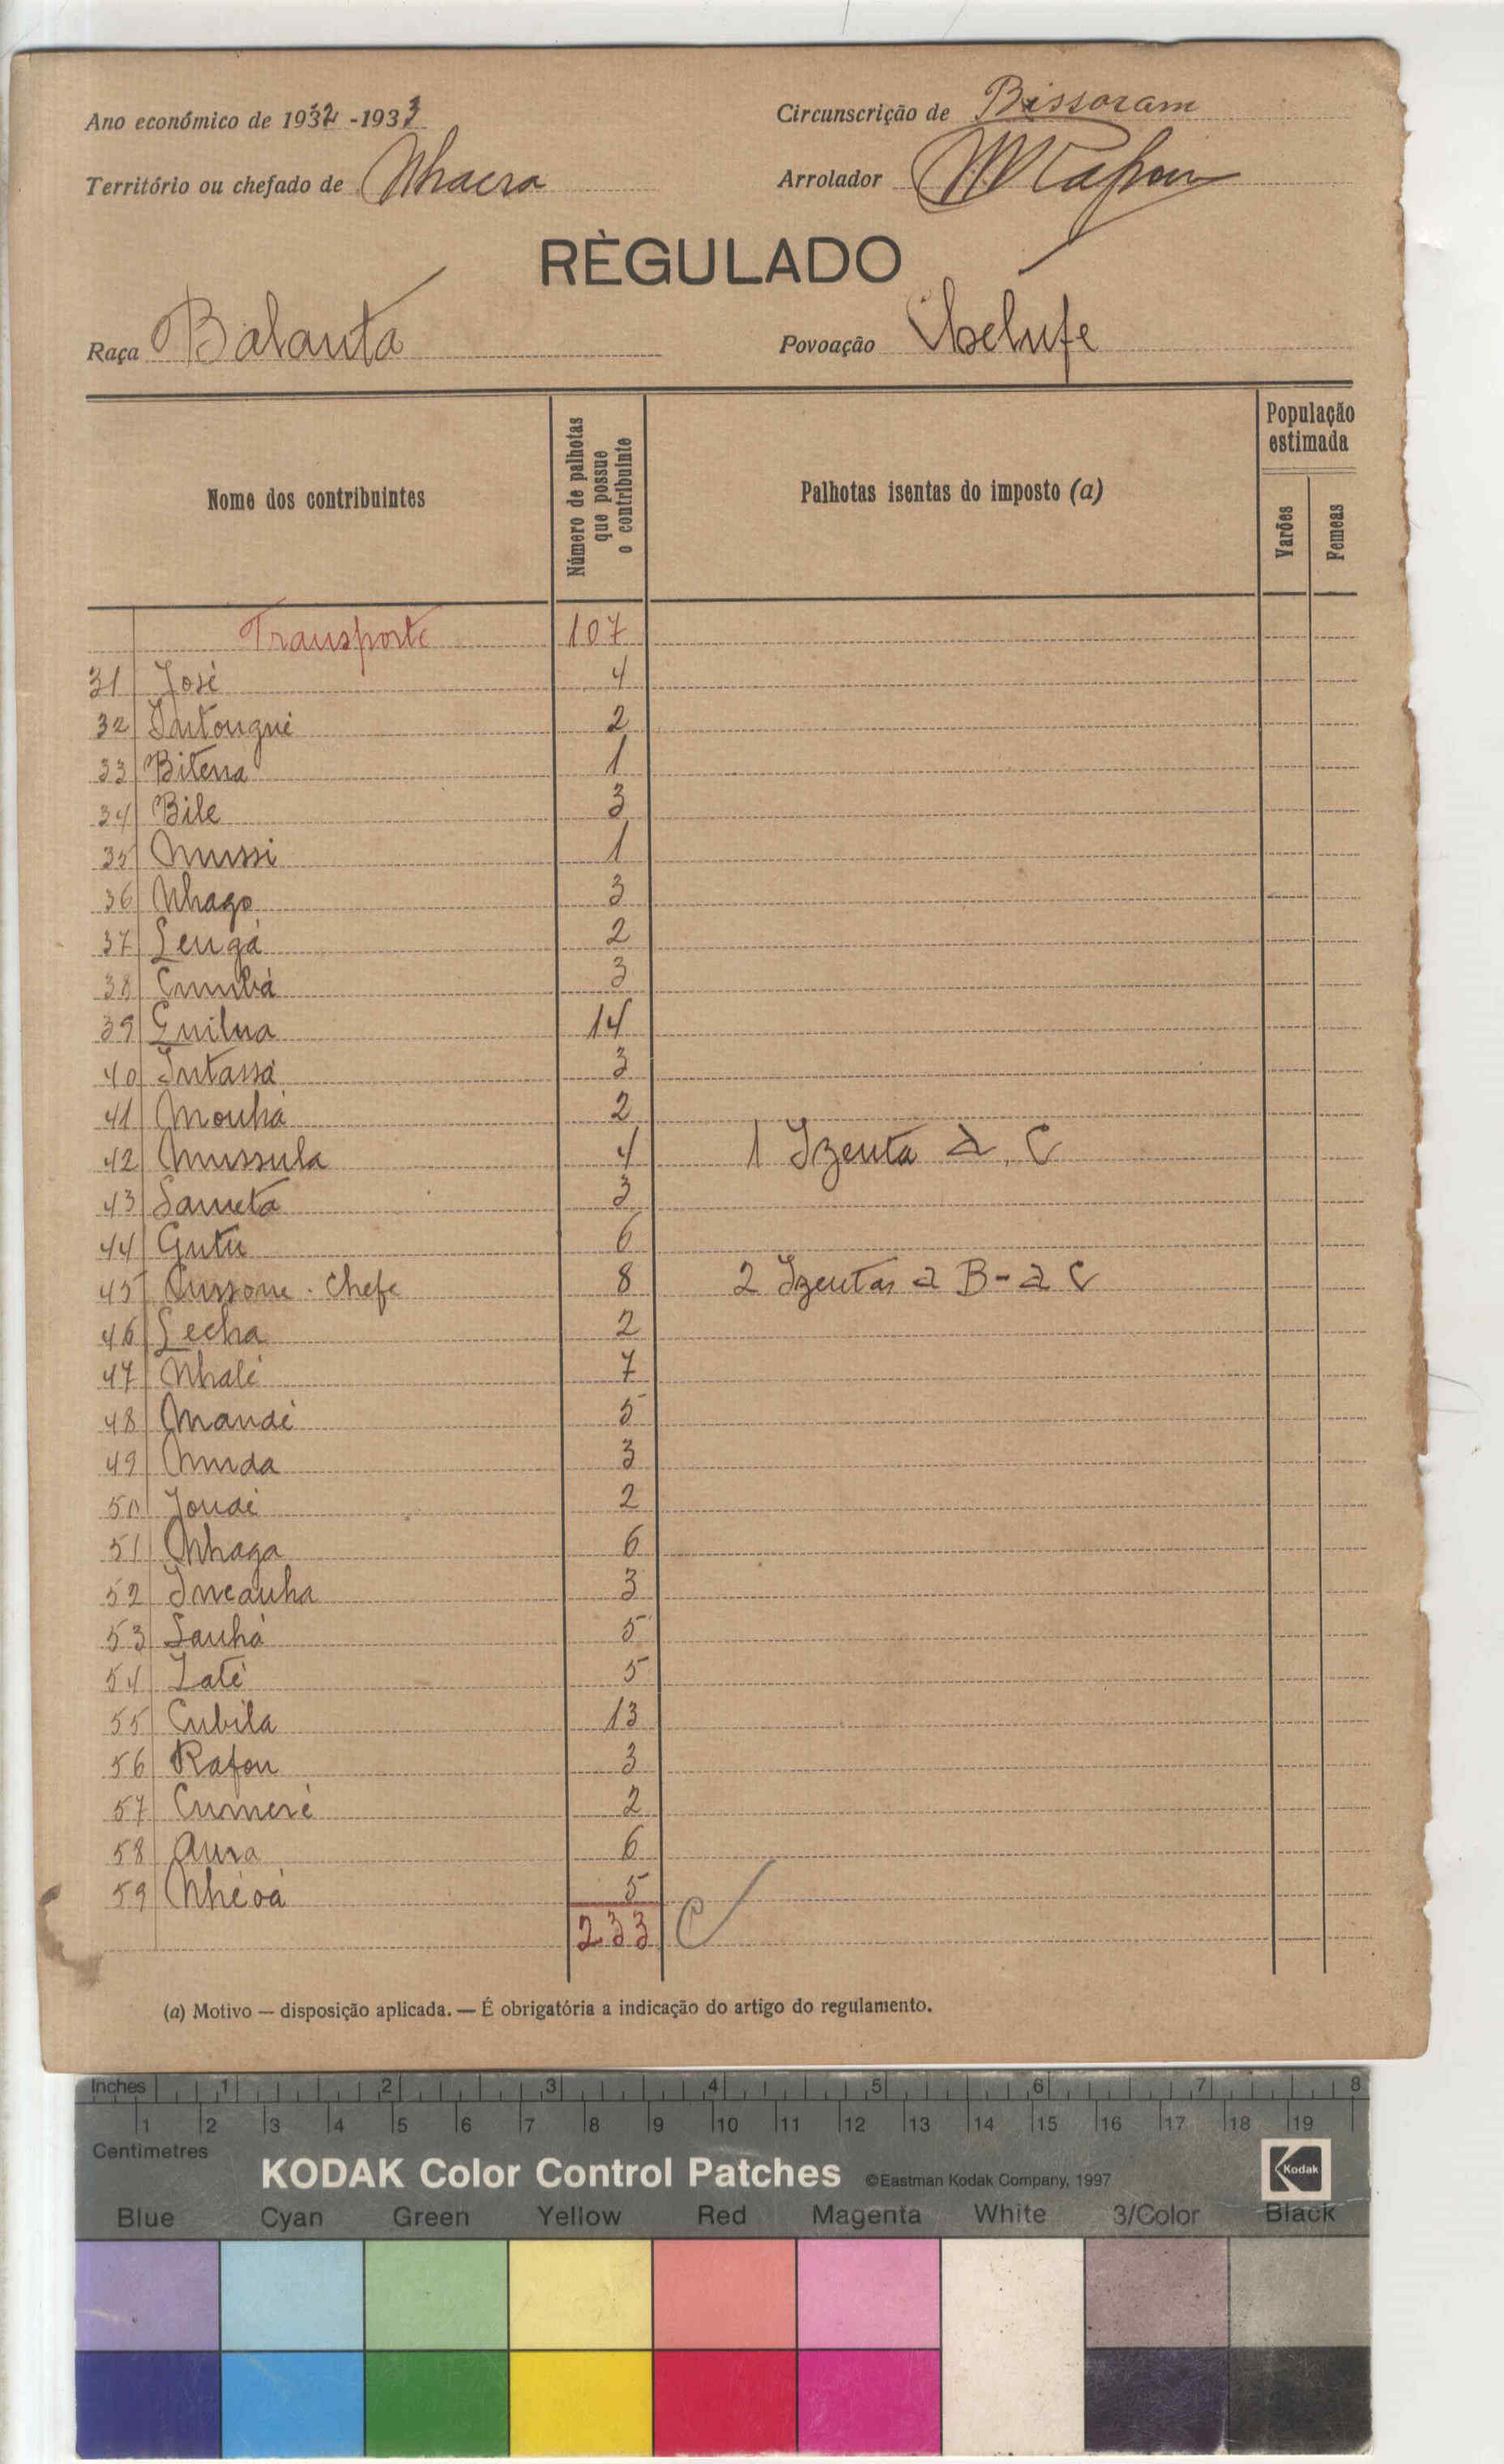 Ano económico de 1932-1933
Circunscrição de Bissoram
Território ou chefado de Nhacra
Arrolador
RÈGULADO
Raça Balanta
Povoação
Nome dos contribuintes
Número de palhotas que possue o contribuinte
Palhotas isentas do imposto (a)
População estimada
Varões
Femeas
Transporte 107
31 José 4
32 Intongué 2
33 Bitena 1
34 Bile 3
35 Mussi 1
36 Nhago 3
37 Lengá 2
38 Cumbá 3
39 Guilna 14
40 Intassá 3
41 Monhá 2
42 Mussula 4 1 Izenta a, C
43 Sameta 3
44 Gutu 6
45 Cussone. Chefe 8 2 Izentas a B - a C
46 Lecha 2
47 Nhalé 7
48 Mandé 5
49 Muda 3
50 Joudé 2
51 Nhaga 6
52 Incanha 3
53 Sanhá 5
54 Laté 5
55 Cubila 13
56 Rafou 3
57 Cumeré 2
58 Aura 6
59 Nhéoá 5
233 C
(a) Motivo — disposição aplicada. — É obrigatória a indicação do artigo do regulamento.
Inches 1 2 3 4 5 6 7 8
1 2 3 4 5 6 7 8 9 10 11 12 13 14 15 16 17 18 19
Centimetres
KODAK Color Control Patches ©Eastman Kodak Company, 1997 Kodak
Blue Cyan Green Yellow Red Magenta White 3/Color Black